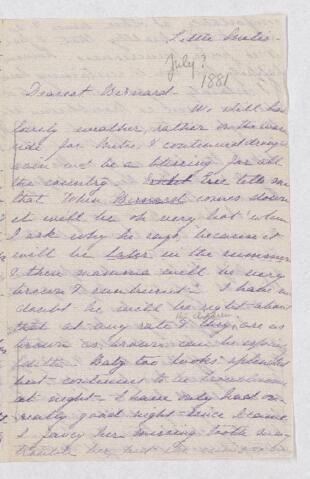 Little Milis
July?
1881
Dearest Bernard.
We still have
lovely weather, rather on the warm
side for Milis, & continued drought
rain wd be a blessing for all
the country. Tree tells me
that when Bernard comes down
it will be oh very hot when
I ask why he says, because it
will be later in the summer
& then mamma will be very
brown & sunburnt. I have no
doubt he will be right about
that at any rate & they are as
brown as brown can be
Baby too looks splendid
but continues to be troublesome
at night. I have only had one
really good night since I came
I fancy her missing tooth